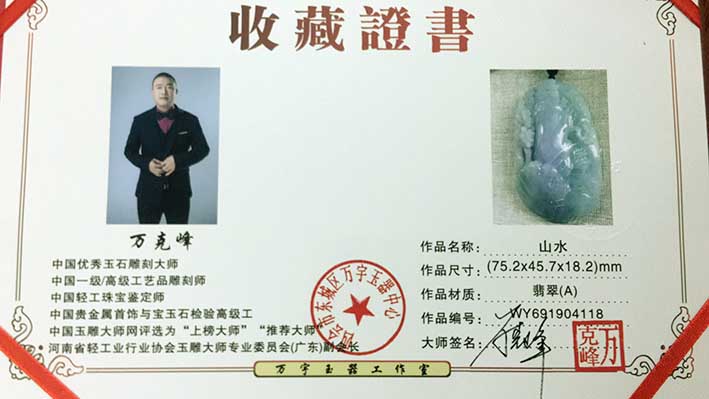 收藏證書
万克峰
中国优秀玉石雕刻大师
中国一级/高级工艺品雕刻师
中国轻工珠宝鉴定师
中国贵金属首饰与宝玉石检验高级工
中国玉雕大师网评选为“上榜大师”“推荐大师”
河南省轻工业行业协会玉雕大师专业委员会(广东)副会长
四会市东城区万宇玉器中心
作品名称: 山水
作品尺寸: (75.2x45.7x18.2)mm
作品材质: 翡翠(A)
作品编号: WY691904118
大师签名:
万克峰
万宇玉器工作室